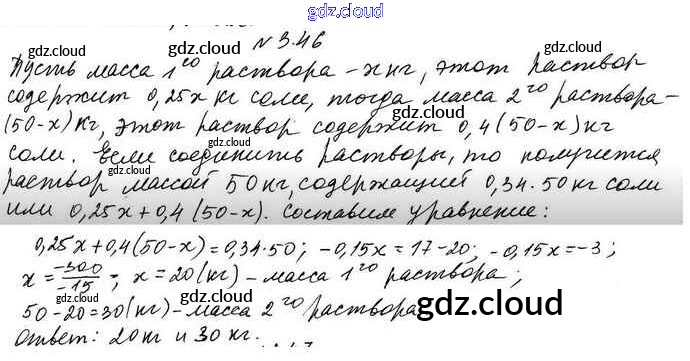 gdz.cloud
gdz.cloud gdz.cloud
№ 3.46
gdz.cloud gdz.cloud
Пусть масса 1го раствора – x кг, этот раствор
содержит 0,25x кг соли, тогда масса 2го раствора –
gdz.cloud
(50-x) кг, этот раствор содержит 0,4(50-x) кг
соли. Если соединить растворы, то получится
gdz.cloud gdz.cloud
раствор массой 50 кг, содержащий 0,34·50 кг соли
или 0,25x+0,4(50-x). Составим уравнение:
gdz.cloud gdz.cloud
0,25x+0,4(50-x)=0,34·50; -0,15x=17-20; -0,15x=-3;
x=-300/-15; x=20(кг) – масса 1го раствора;
50-20=30(кг) – масса 2го раствора
gdz.cloud gdz.cloud
Ответ: 20 кг и 30 кг.